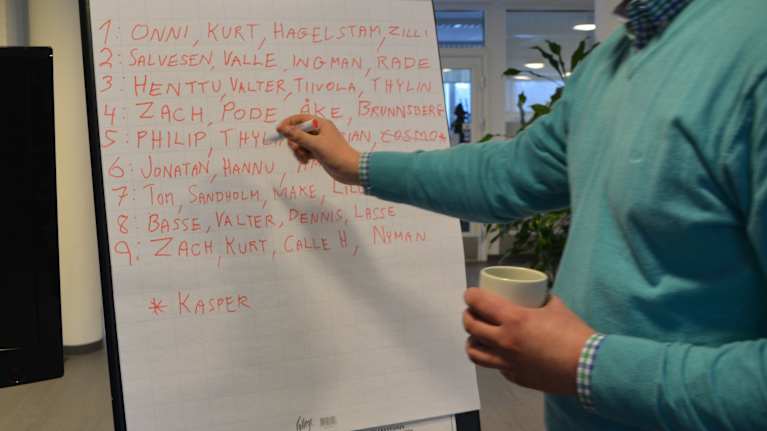 1: ONNI, KURT, HAGELSTAM, ZILLI
2: SALVESEN, VALLE, INGMAN, RADE
3: HENTTU, VALTER, TIIVOLA, THYLIN
4: ZACH, PODE, ÅKE, BRUNNSBERG
5: PHILIP, COSMO*
6: JONATAN, HANNU,
7: TOM, SANDHOLM, MAKE,
8: BASSE, VALTER, DENNIS, LASSE
9: ZACH, KURT, CALLE H, NYMAN
* KASPER